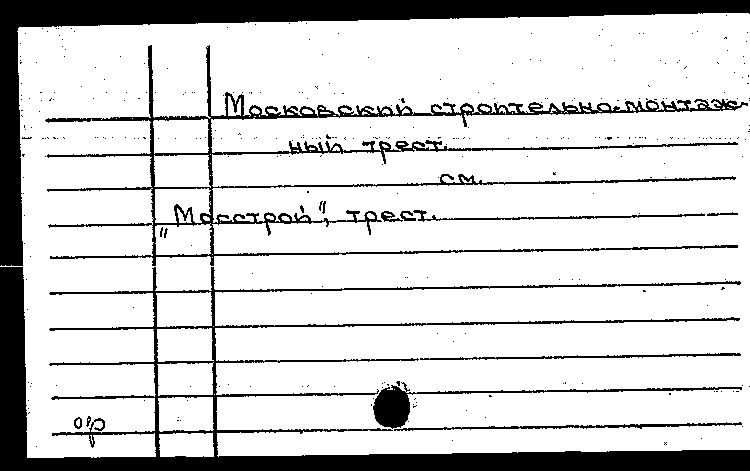 Московский строительно-монтаж-
ный трест.
см.
„Мосстрой", трест.